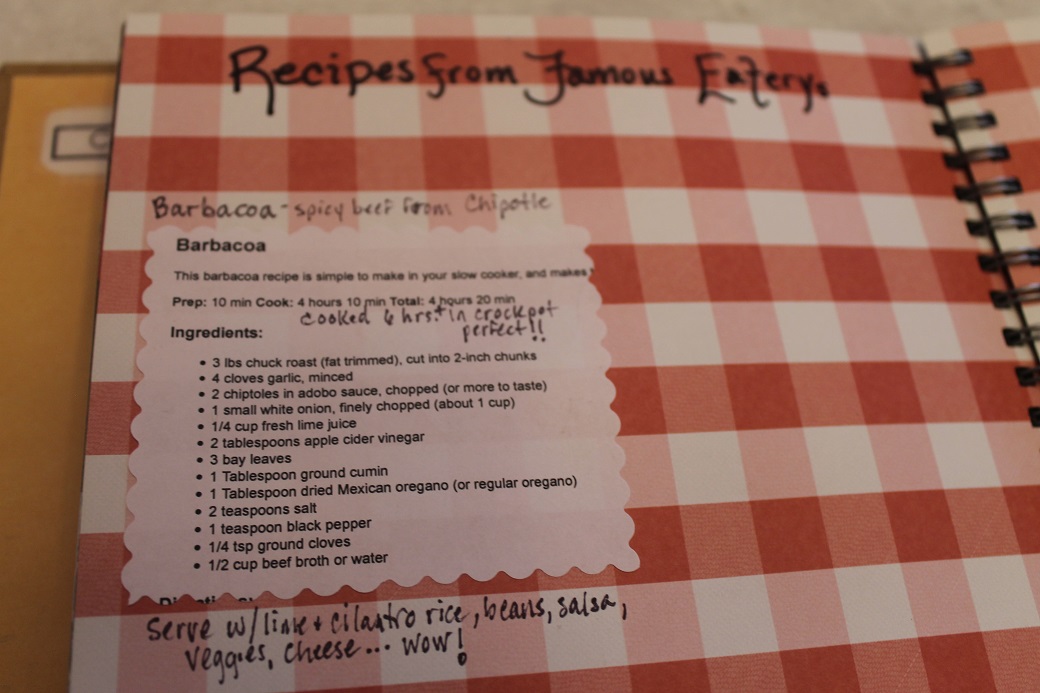 Recipes from Famous Eatery.
Barbacoa - spicy beef from Chipotle
Barbacoa
This barbacoa recipe is simple to make in your slow cooker, and makes
Prep: 10 min Cook: 4 hours 10 min Total: 4 hours 20 min
Cooked 6 hrs. in crockpot
perfect!!
Ingredients:
• 3 lbs chuck roast (fat trimmed), cut into 2-inch chunks
• 4 cloves garlic, minced
• 2 chiptoles in adobo sauce, chopped (or more to taste)
• 1 small white onion, finely chopped (about 1 cup)
• 1/4 cup fresh lime juice
• 2 tablespoons apple cider vinegar
• 3 bay leaves
• 1 Tablespoon ground cumin
• 1 Tablespoon dried Mexican oregano (or regular oregano)
• 2 teaspoons salt
• 1 teaspoon black pepper
• 1/4 tsp ground cloves
• 1/2 cup beef broth or water
Serve w/ lime + cilantro rice, beans, salsa,
veggies, cheese... wow!